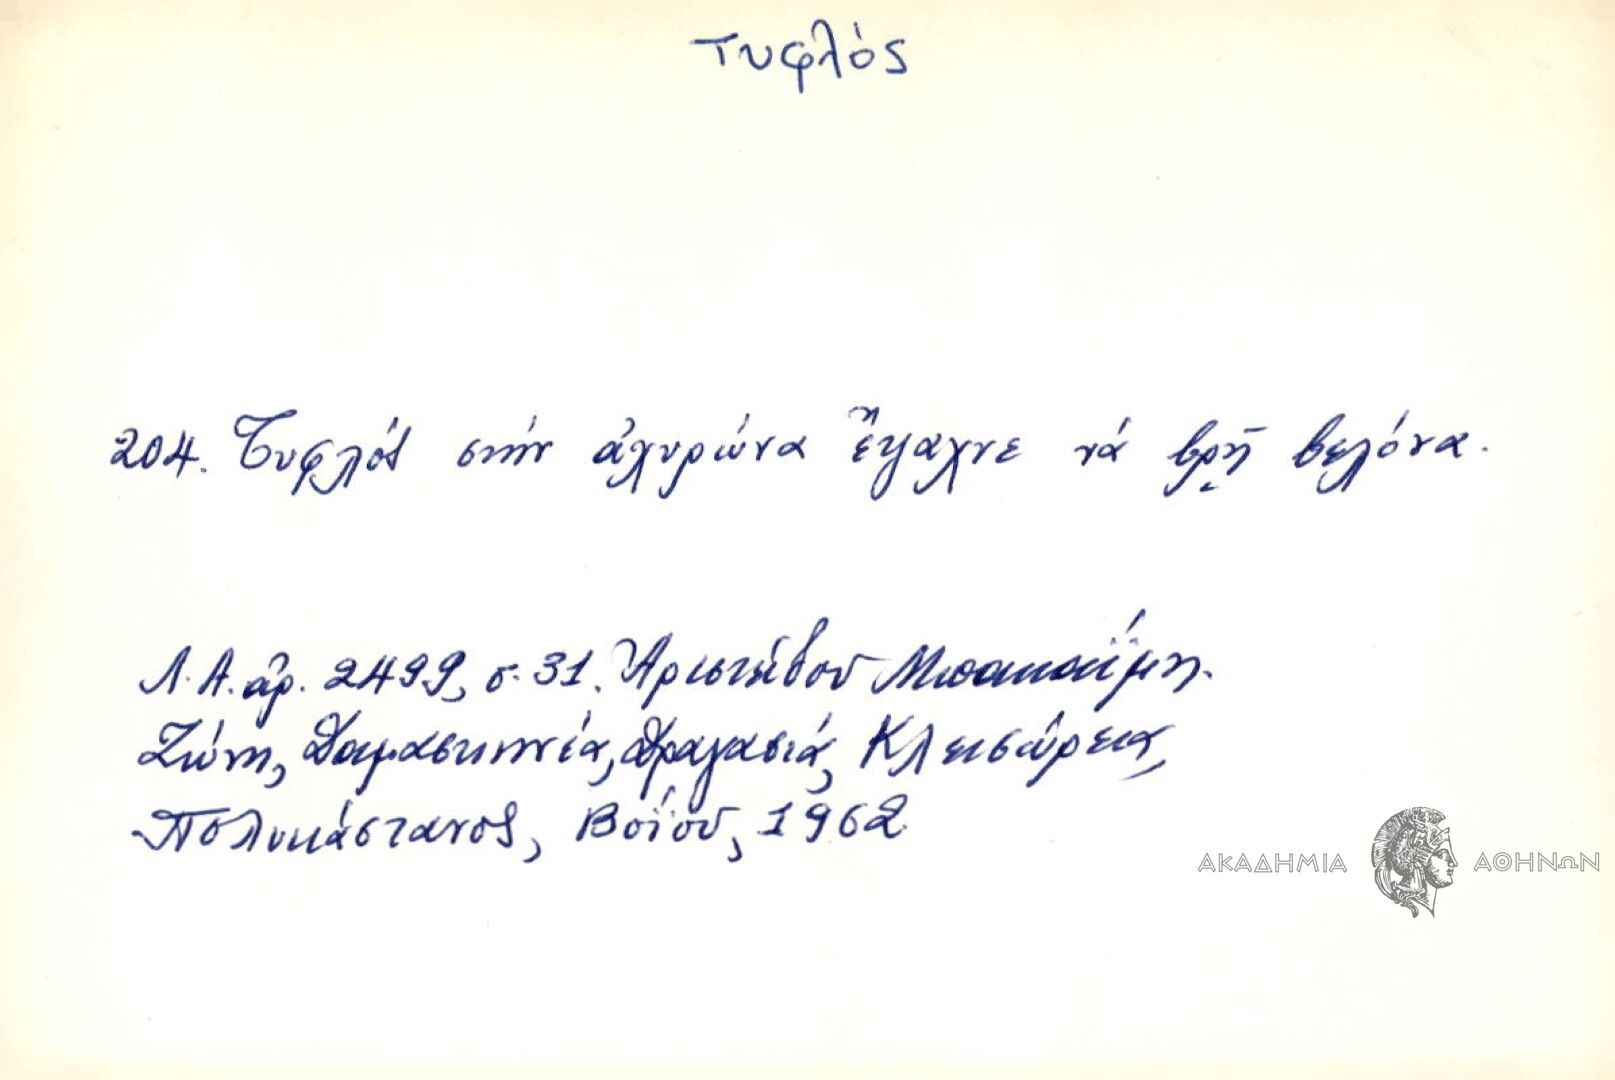 Τυφλός
204. Τυφλός στήν ἀχυρώνα ἔψαχνε νά βρῇ βελόνα.
Λ.Α. ἀρ. 2499, σ. 31. Ἀριστείδου Μπακαΐμη.
Ζώνη, Δαμασκηνέα, Δραγασιά, Κλεισώρεια,
Πολυκάστανος, Βοΐου, 1962
ΑΚΑΔΗΜΙΑ ΑΘΗΝΩΝ